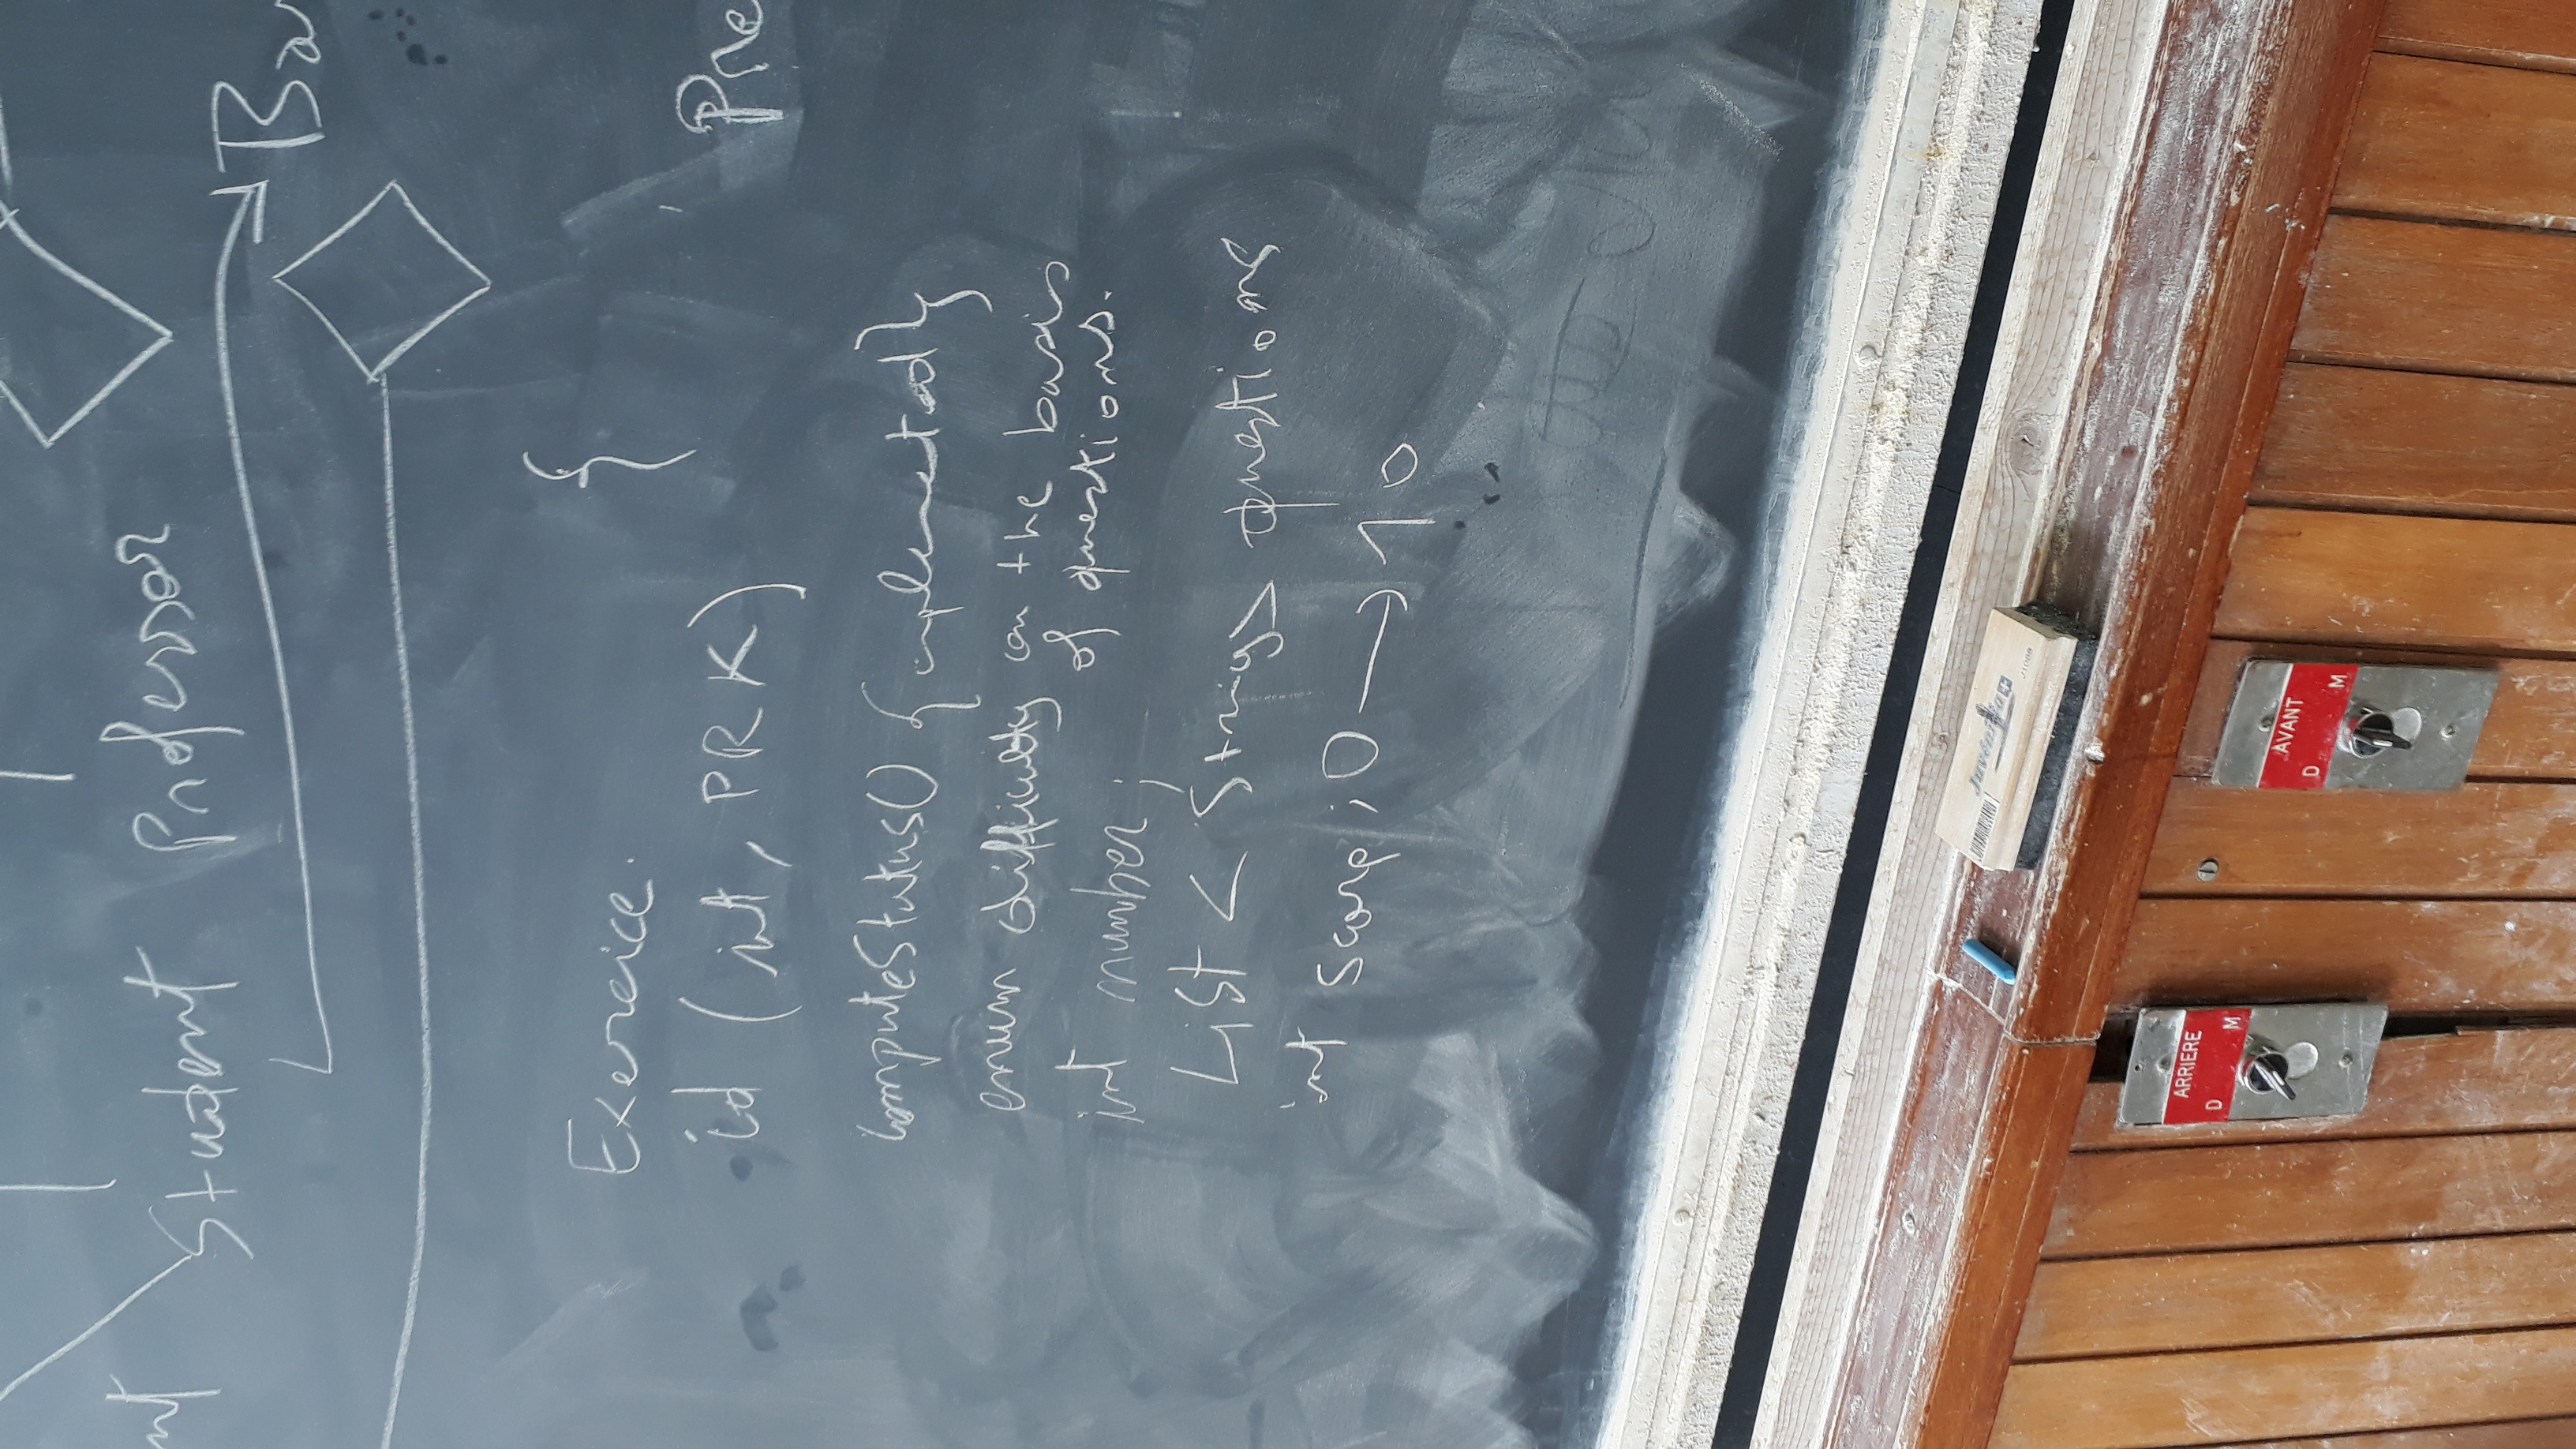 nt Student Professor
Bar
Exercice.
{
id (int, PRK)
Pre
computeStatus() {implemented}
enum difficulty on the basis
of questions.
int number;
List < String> questions
int score; 0 → 10
Juvénilia
J1088
ARRIERE
D M
AVANT
D M